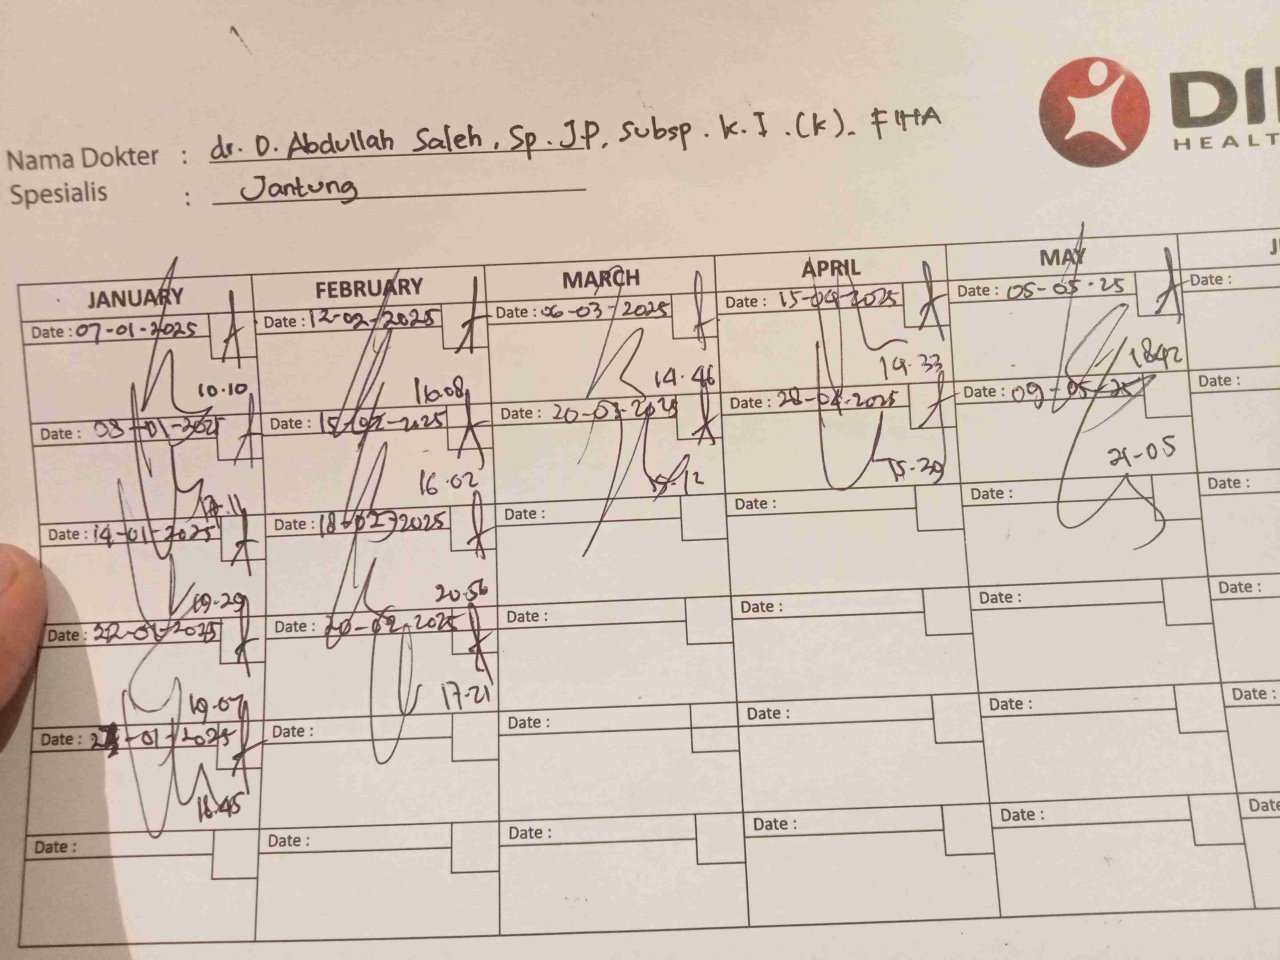 Nama Dokter : dr. D. Abdullah Saleh, Sp. J.P, Subsp. K.I.(K). FIHA
Spesialis : Jantung
DI
HEALT
JANUARY FEBRUARY MARCH APRIL MAY J
Date : 07-01-2025 Date : 12-02-2025 Date : 06-03-2025 Date : 15-04-2025 Date : 05-05-25 Date :
10.10 16.08 14.46 19.33 1842
Date : 08-01-2025 Date : 15-02-2025 Date : 20-03-2025 Date : 28-04-2025 Date : 09-05-25 Date :
16.02 15.12 15.29 21-05
Date : 14-01-2025 Date : 18-02-2025 Date : Date : Date : Date :
19.29 20.56
Date : 22-01-2025 Date : 20-02-2025 Date : Date : Date : Date :
19.07 17.21
Date : -01-2025 Date : Date : Date : Date : Date :
18.45
Date : Date : Date : Date : Date : Date